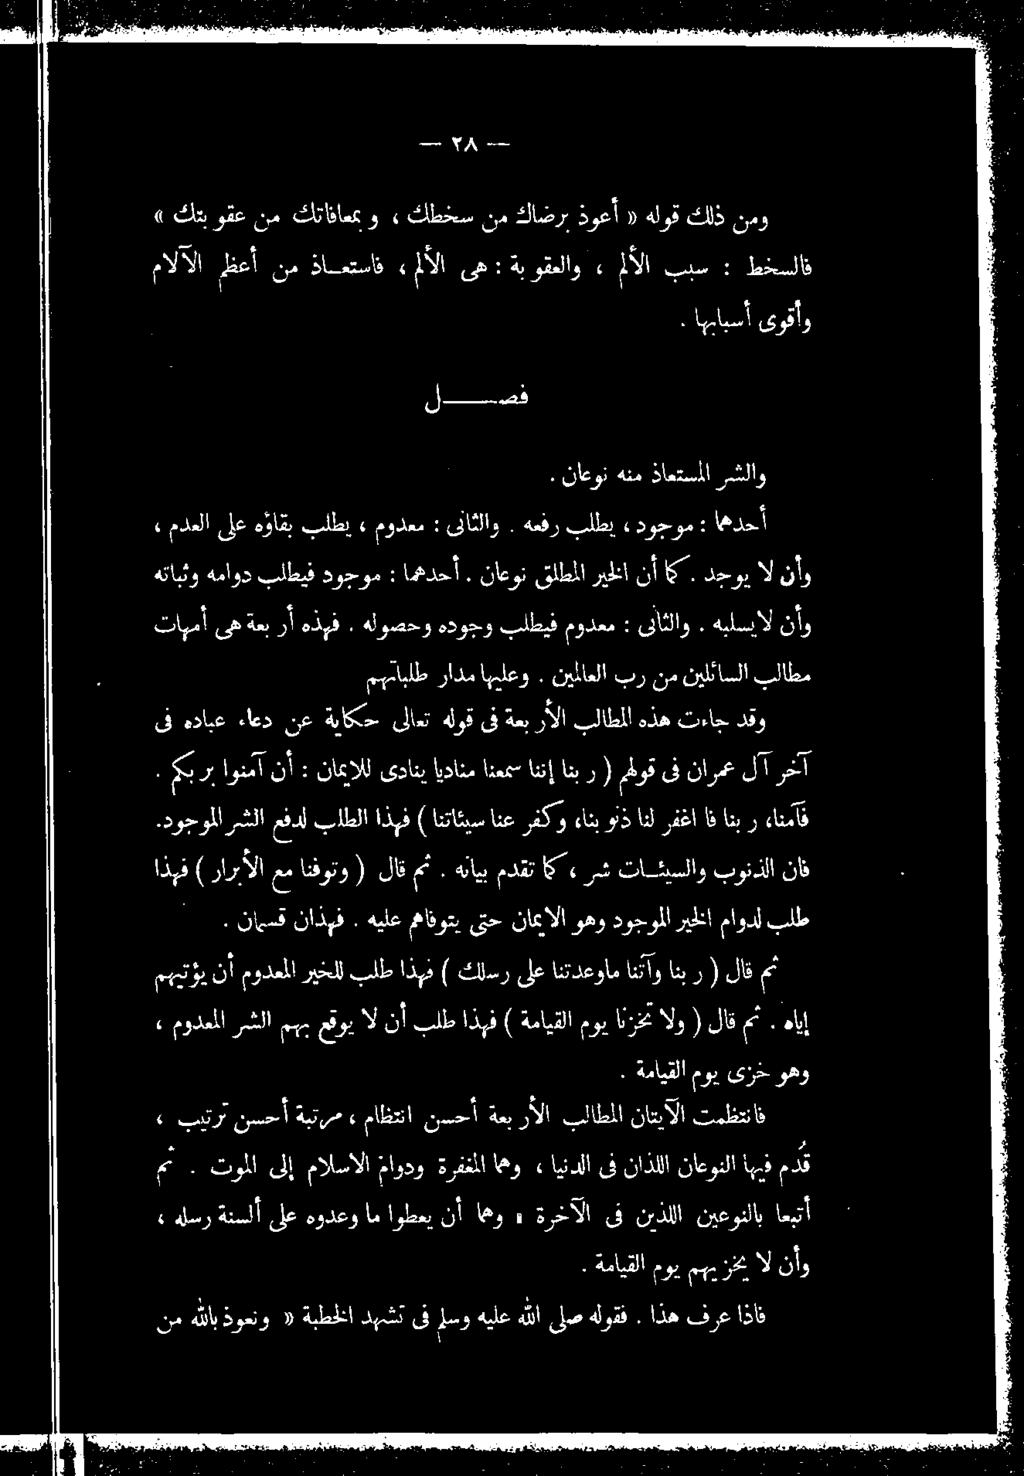 — ٢٨ —
ومن ذلك قوله « أعوذ برضاك من سخطك ، وبمعافاتك من عقوبتك »
فالسخط : سبب الألم ، والعقوبة : هى الألم ، فاستعاذ من أعظم الآلام
وأقوى أسبابها .
فصل
والشر المستعاذ منه نوعان .
أحدهما : موجود ، يطلب رفعه . والثانى : معدوم ، يطلب بقاؤه على العدم ،
وأن لا يوجد . كما أن الخير المطلق نوعان . أحدهما : موجود فيطلب دوامه وثباته
وأن لايسلبه . والثانى : معدوم فيطلب وجوده وحصوله . فهذه أربعة هى أمهات
مطالب السائلين من رب العالمين . وعليها مدار طلباتهم
وقد جاءت هذه المطالب الأربعة فى قوله تعالى حكاية عن دعاء عباده فى
آخر آل عمران فى قولهم ( ربنا إننا سمعنا مناديا ينادى للايمان : أن آمنوا بربكم .
فآمنا ، ربنا فاغفر لنا ذنوبنا ، وكفر عنا سيئاتنا ) فهذا الطلب لدفع الشر الموجود .
فان الذنوب والسيئات شر ، كما تقدم بيانه . ثم قال ( وتوفنا مع الأبرار ) فهذا
طلب لدوام الخير الموجود وهو الايمان حتى يتوفاهم عليه . فهذان قسمان .
ثم قال ( ربنا وآتنا ماوعدتنا على رسلك ) فهذا طلب للخير المعدوم أن يؤتيهم
إياه . ثم قال ( ولا تخزنا يوم القيامة ) فهذا طلب أن لا يوقع بهم الشر المعدوم ،
وهو خزى يوم القيامة .
فانتظمت الآيتان المطالب الأربعة أحسن انتظام ، مرتبة أحسن ترتيب ،
قُدم فيها النوعان اللذان فى الدنيا ، وهما المغفرة ودوام الاسلام إلى الموت . ثم
أتبعا بالنوعين اللذين فى الآخرة ، وهما أن يعطوا ما وعدوه على ألسنة رسله ،
وأن لا يخزيهم يوم القيامة .
فاذا عرف هذا . فقوله صلى الله عليه وسلم فى تشهد الخطبة « ونعوذ بالله من